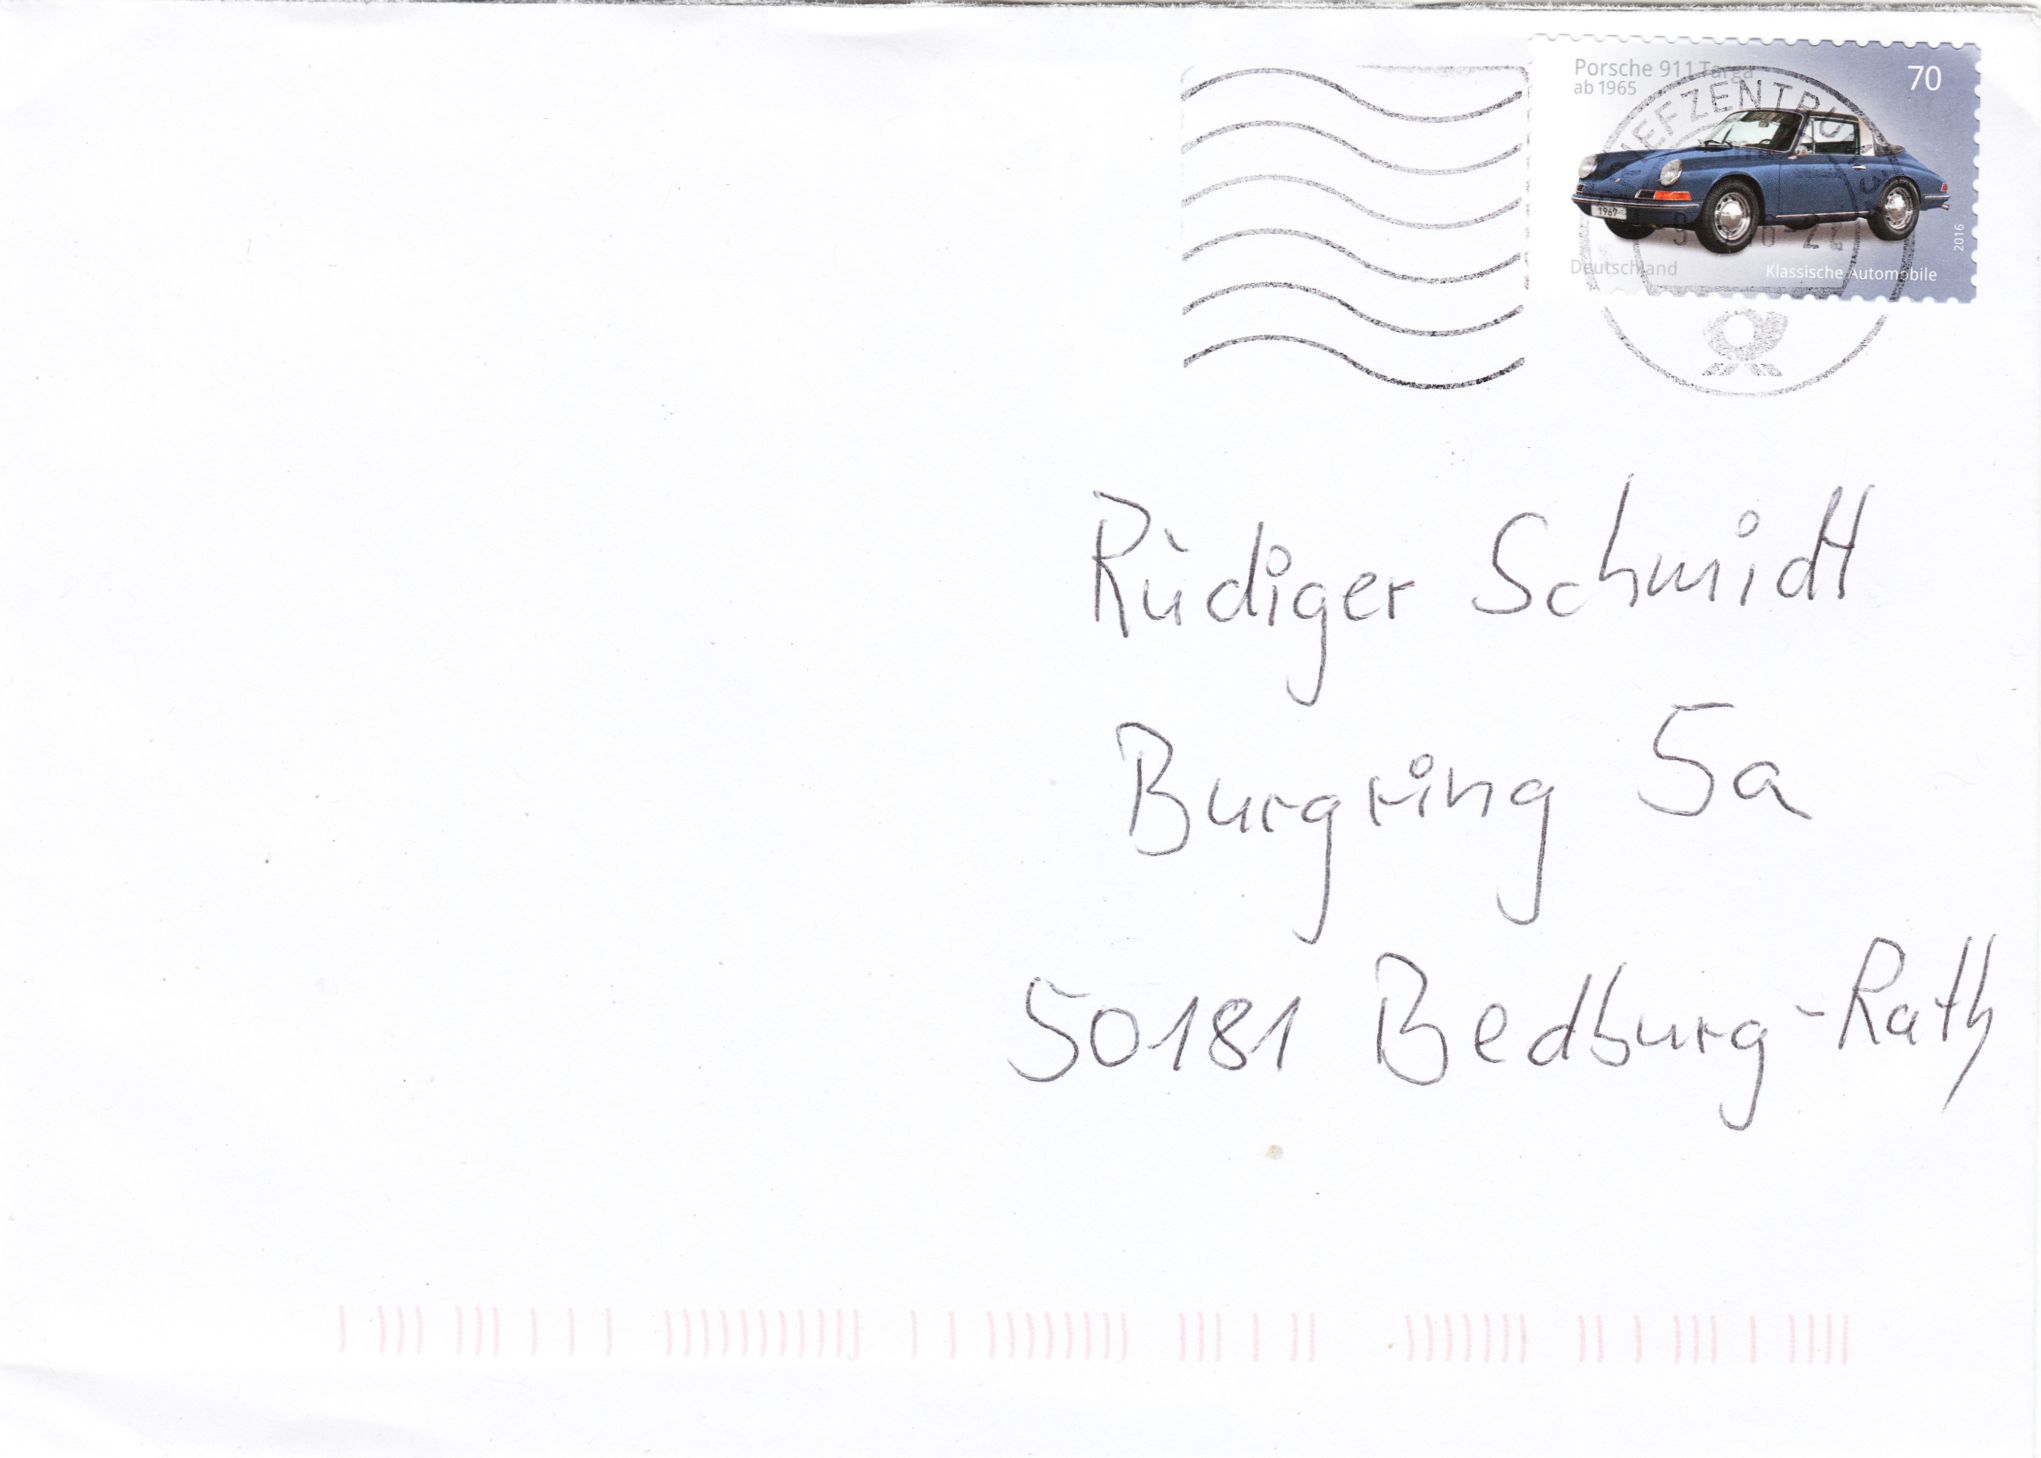 Porsche 911 Targa
ab 1965
70
1967
2016
Deutschland
Klassische Automobile
Rüdiger Schmidt
Burgring 5a
50181 Bedburg-Rath